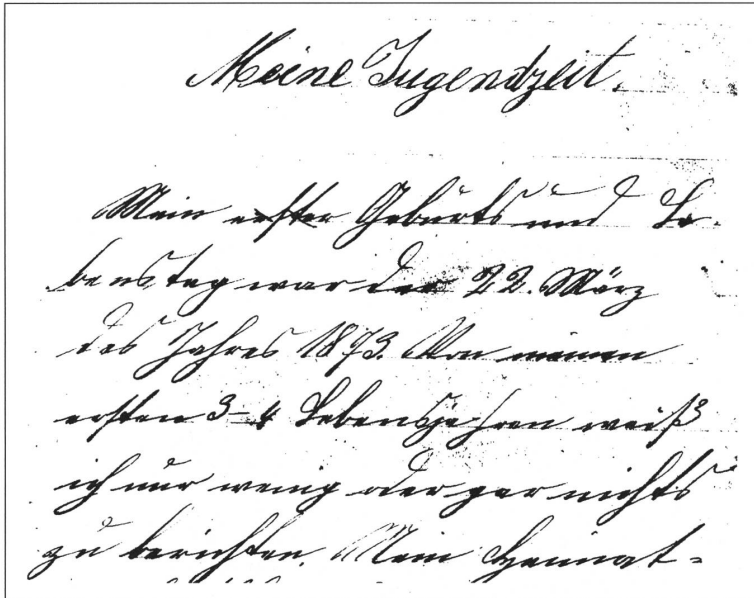 Meine Jugendzeit.
Mein erster Geburts und Le-
benstag war der 22. März
des Jahres 1873. Von meinen
ersten 3-4 Lebensjahren weiß
ich nur wenig oder gar nichts
zu berichten. Mein Heimat-